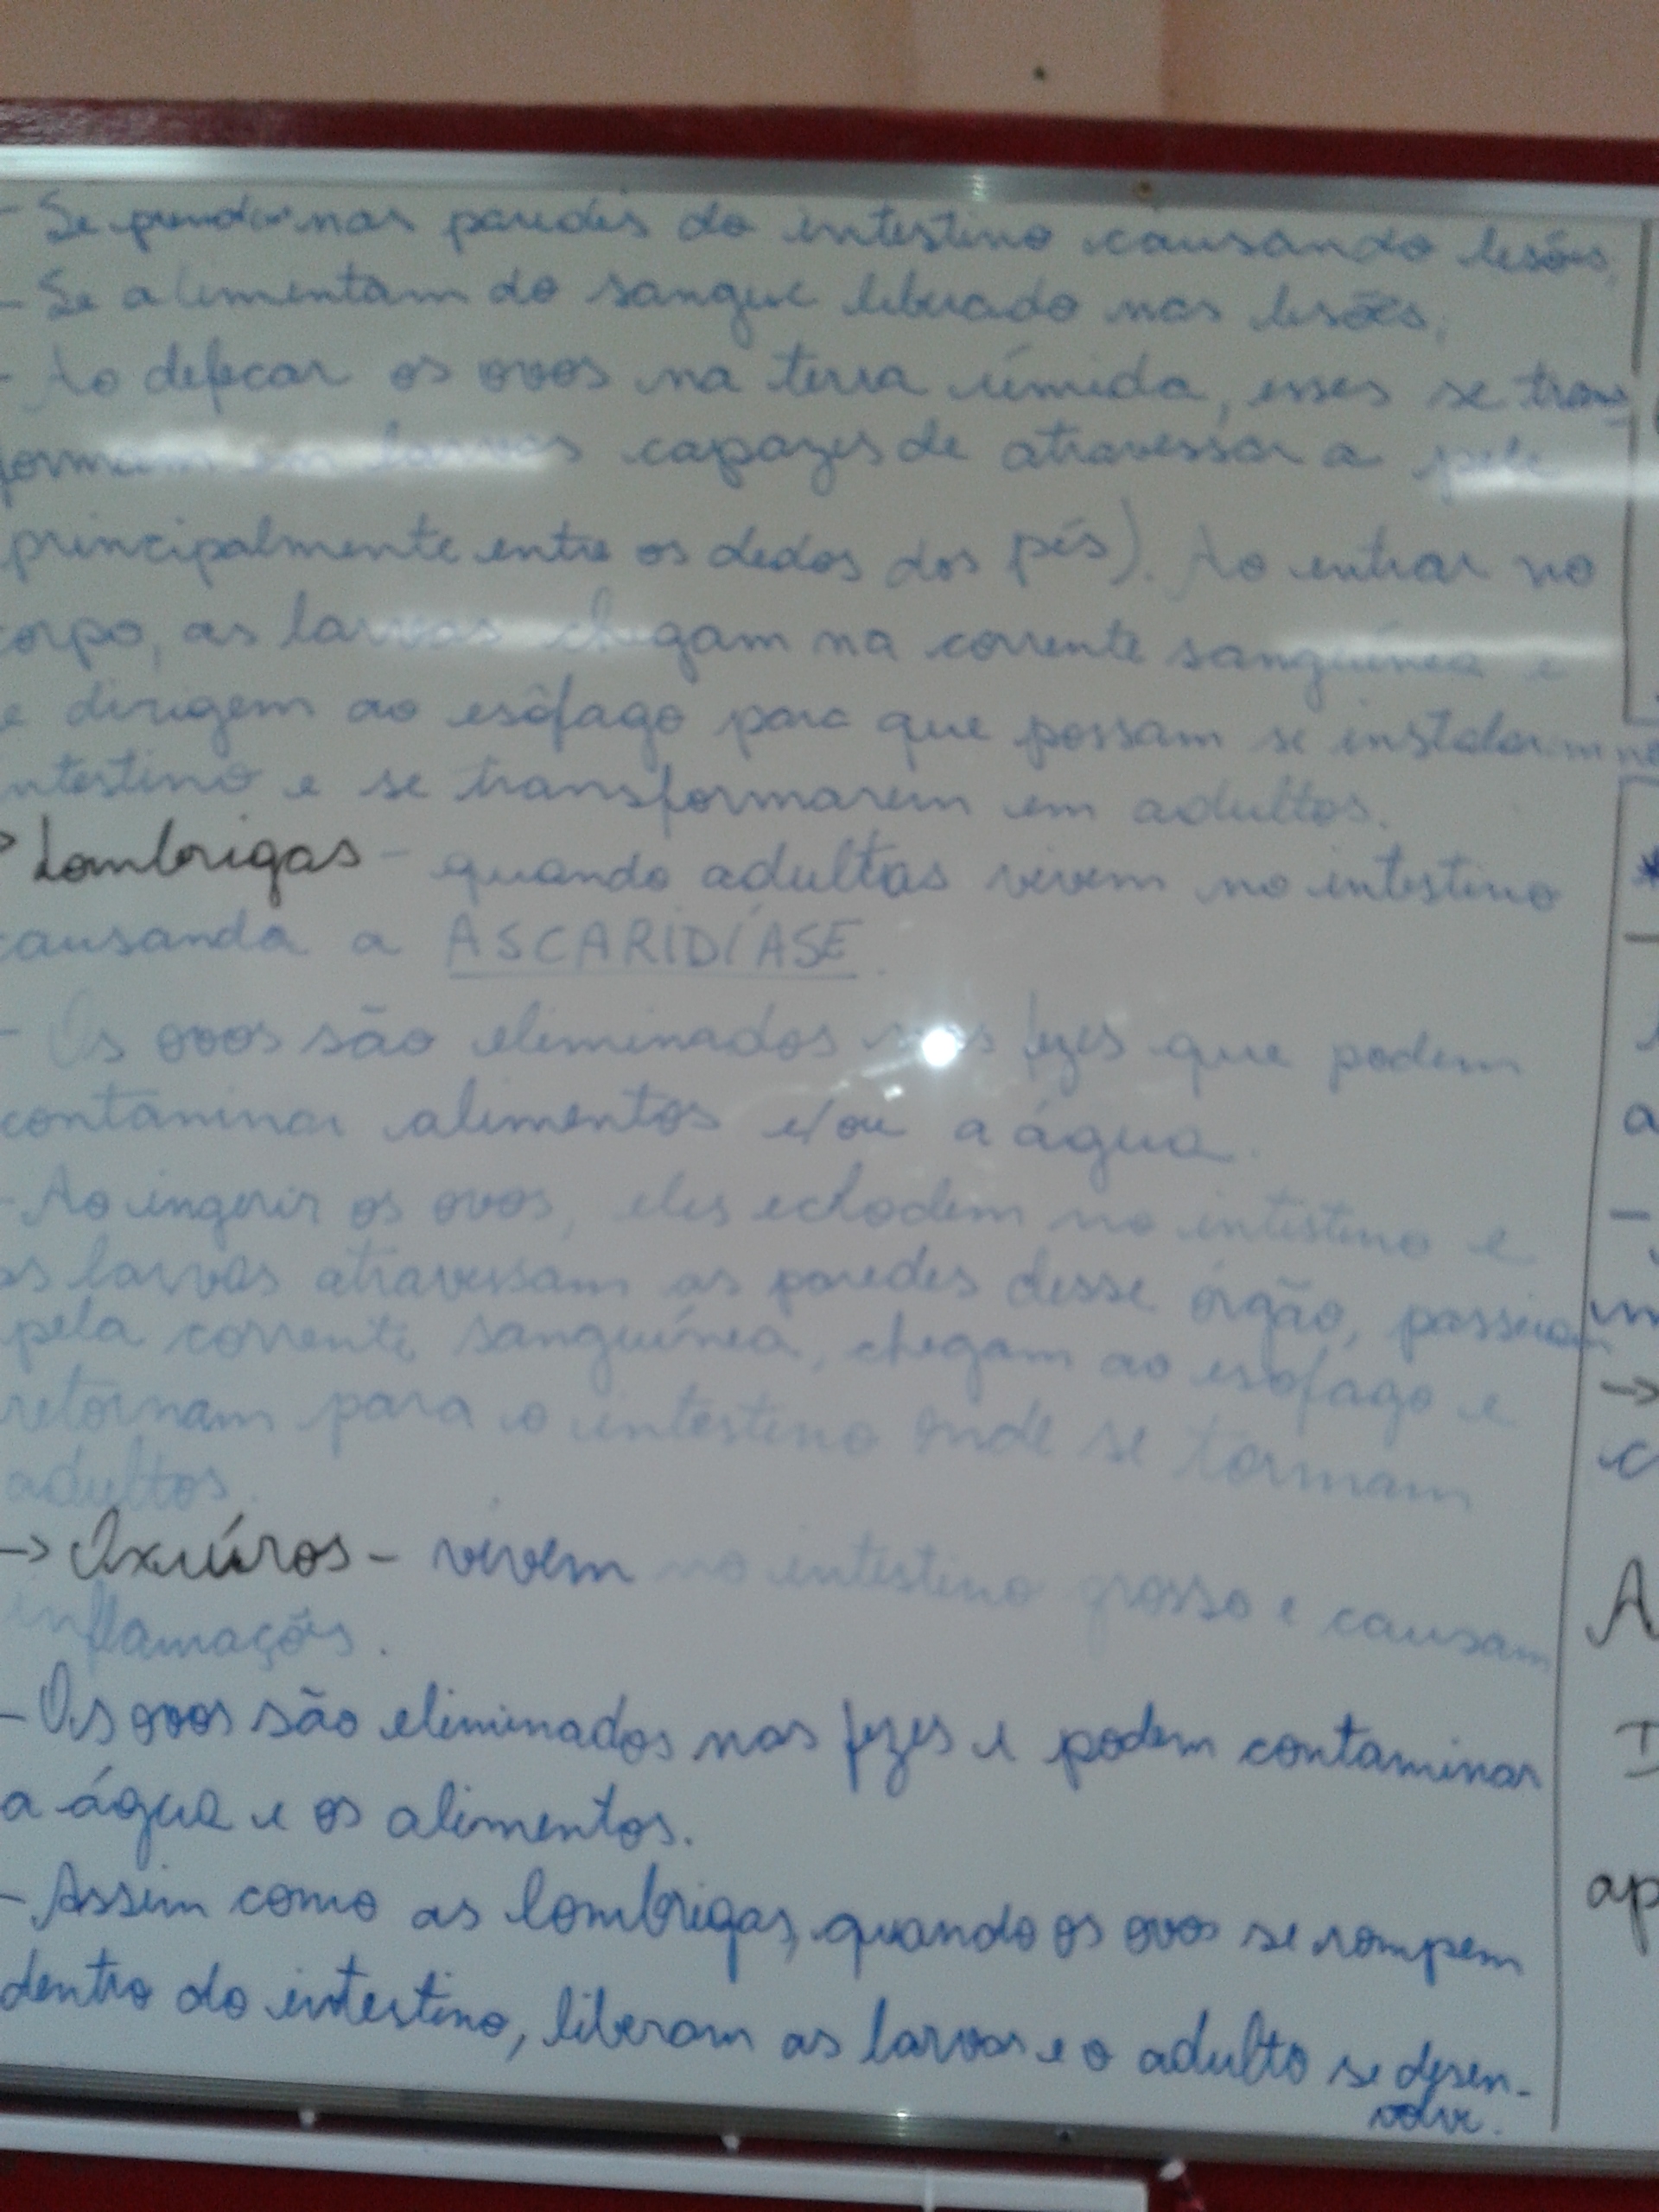 - Se prendem nas paredes do intestino causando lesões,
- Se alimentam do sangue liberado nas lesões,
- Ao defecar os ovos na terra úmida, esses se trans-
formam em larvas capazes de atravessar a pele
principalmente entre os dedos dos pés). Ao entrar no
corpo, as larvas chegam na corrente sanguínea e
e dirigem ao esôfago para que possam se instalarem no
ntestino e se transformarem em adultos.
> Lombrigas - quando adultas vivem no intestino
causando a ASCARIDÍASE.
- Os ovos são eliminados nas fezes que podem
contaminar alimentos e/ou a água.
- Ao ingerir os ovos, eles eclodem no intestino e
as larvas atravessam as paredes desse órgão, passeiam
pela corrente sanguínea, chegam ao esôfago e
retornam para o intestino onde se tornam
adultos.
-> Oxiúros - vivem no intestino grosso e causam
inflamações.
- Os ovos são eliminados nas fezes e podem contaminar
a água e os alimentos.
- Assim como as lombrigas, quando os ovos se rompem
dentro do intestino, liberam as larvas e o adulto se desen-
volve.